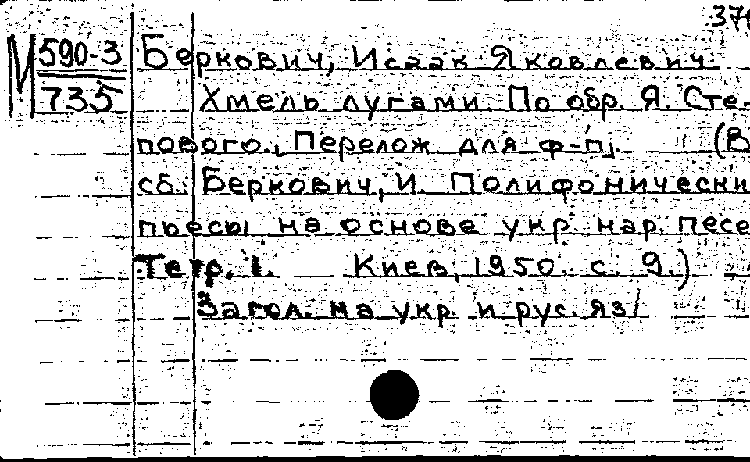 370
М 590-3 Беркович, Исаак Яковлевич.
735 Хмель лугами. По обр. Я. Сте-
пового. Перелож. для ф-п. (В
сб.: Беркович, И. Полифонически
пьесы на основе укр. нар. песе
Тетр. 1. Киев, 1950. с. 9.)
Загол. на укр. и рус. яз.